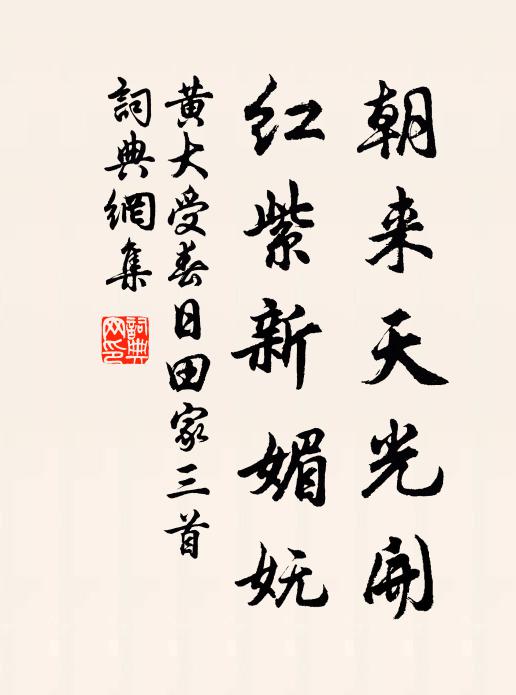 朝来天光開
红紫新媚妩
黄大受春日田家三首
詞典網集
詞典網印